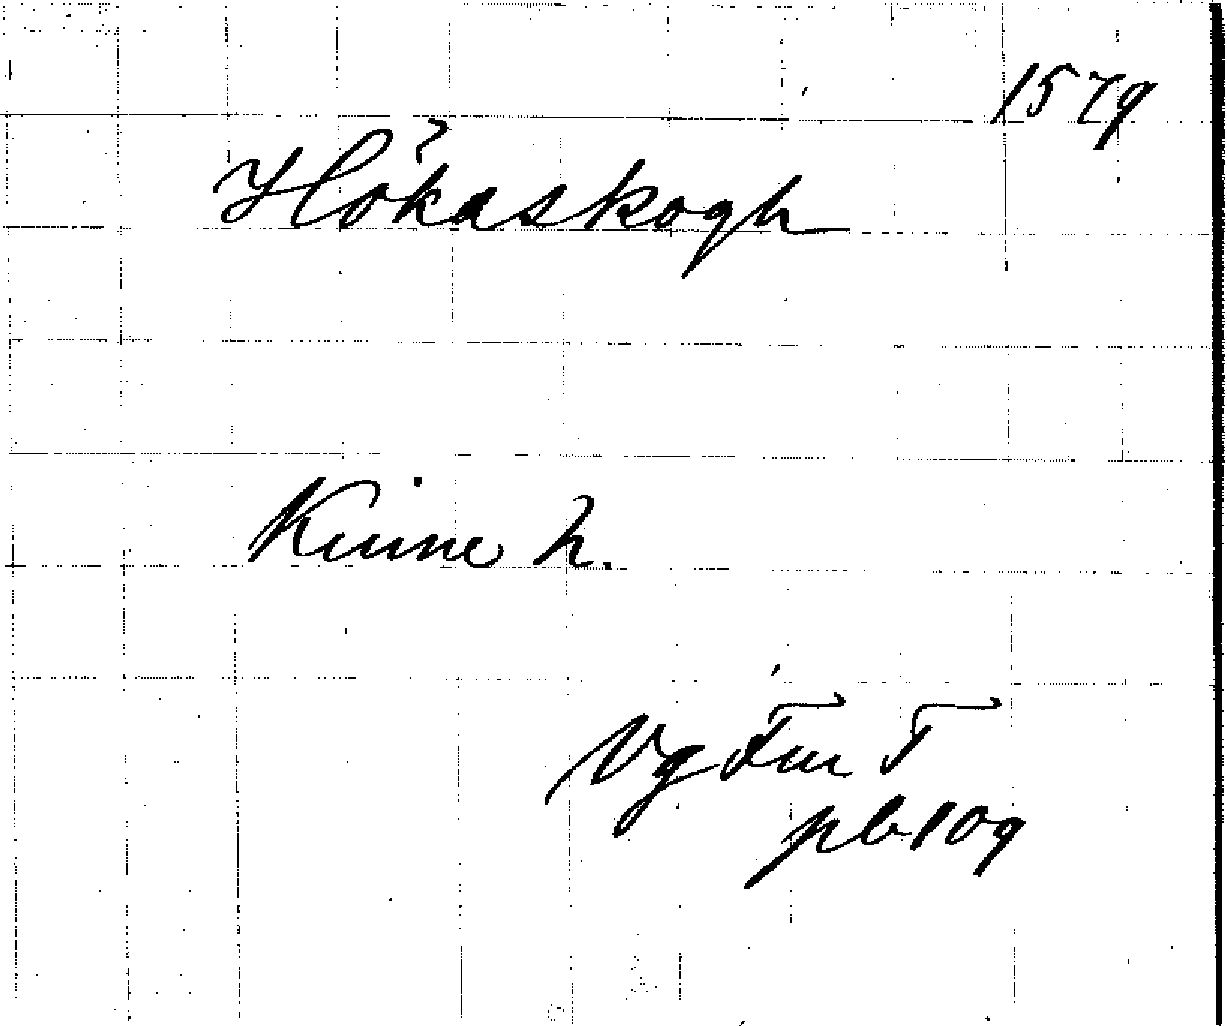 1579
Hökaskogh
Kinne h.
Vg Fm T
pb 109